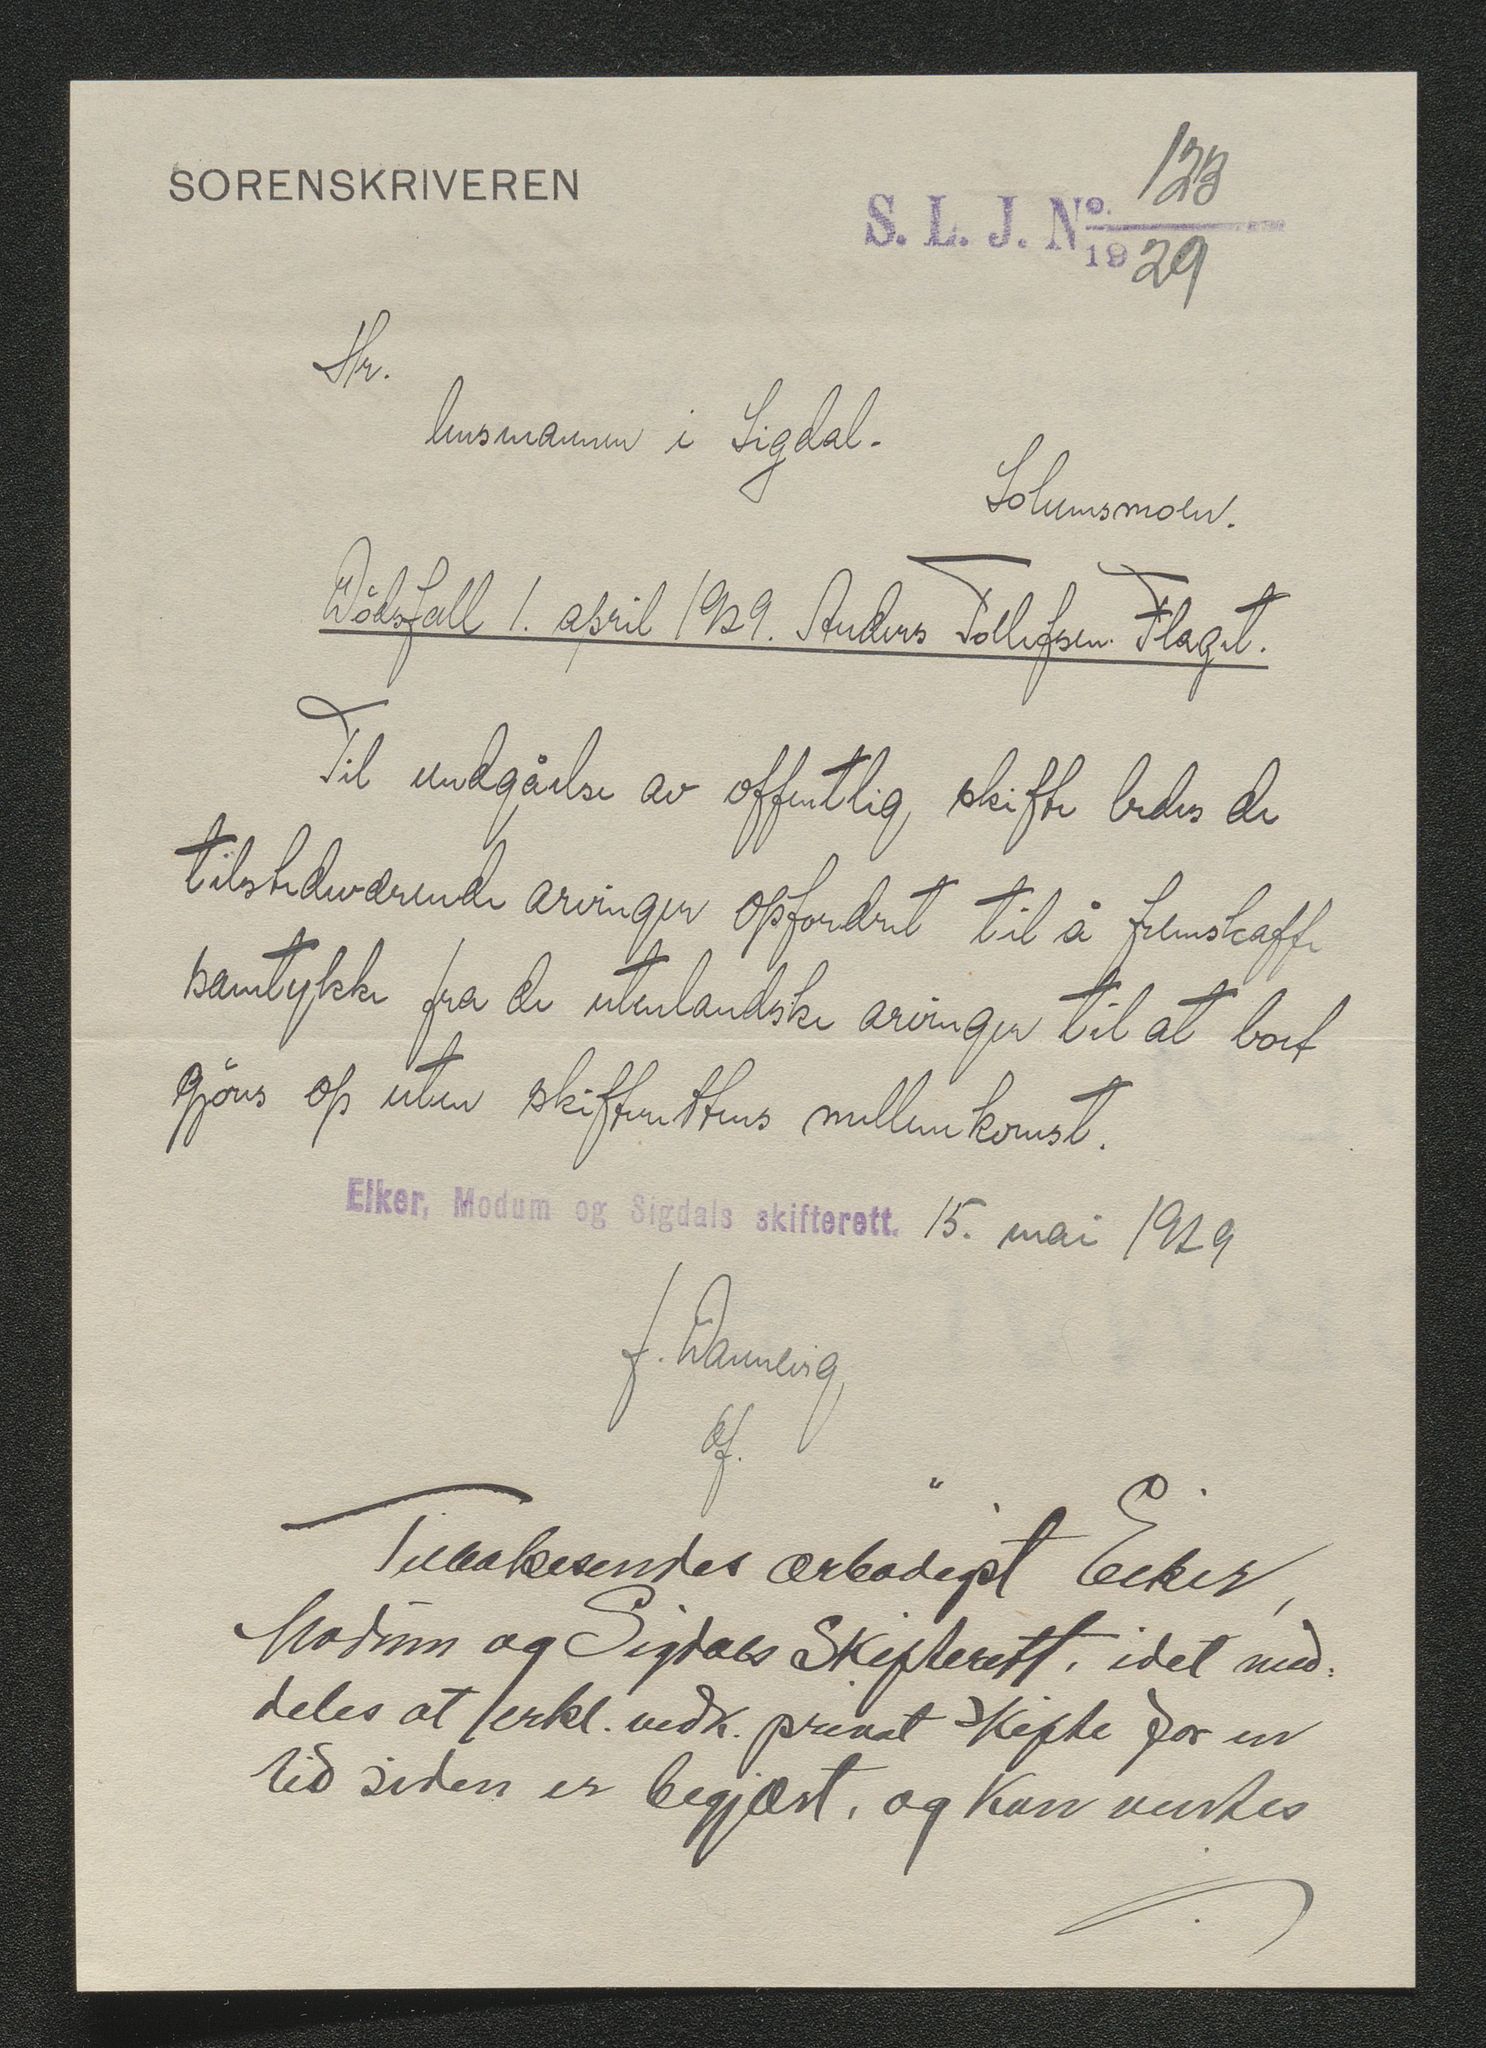 SORENSKRIVEREN
S. L. J. Nº 123
1929
Hr.
lensmannen i Sigdal.
Solumsmoen.
Dödsfall 1. april 1929. Anders Tollefsen Flaget.
Til undgåelse av offentlig skifte bedes de
tilstedeværende arvinger opfordret til å fremskaffe
samtykke fra de utenlandske arvinger til at boet
gjöres op uten skifterettens mellemkomst.
Eiker, Modum og Sigdals skifterett. 15. mai 1929
f. Dannevig,
ef.
Tilbakesendes ærbødigst Eeker,
Modum og Sigdals Skifterett, idet med-
deles at erkl. vedk. privat skifte for en
tid siden er begjært, og kan ventes